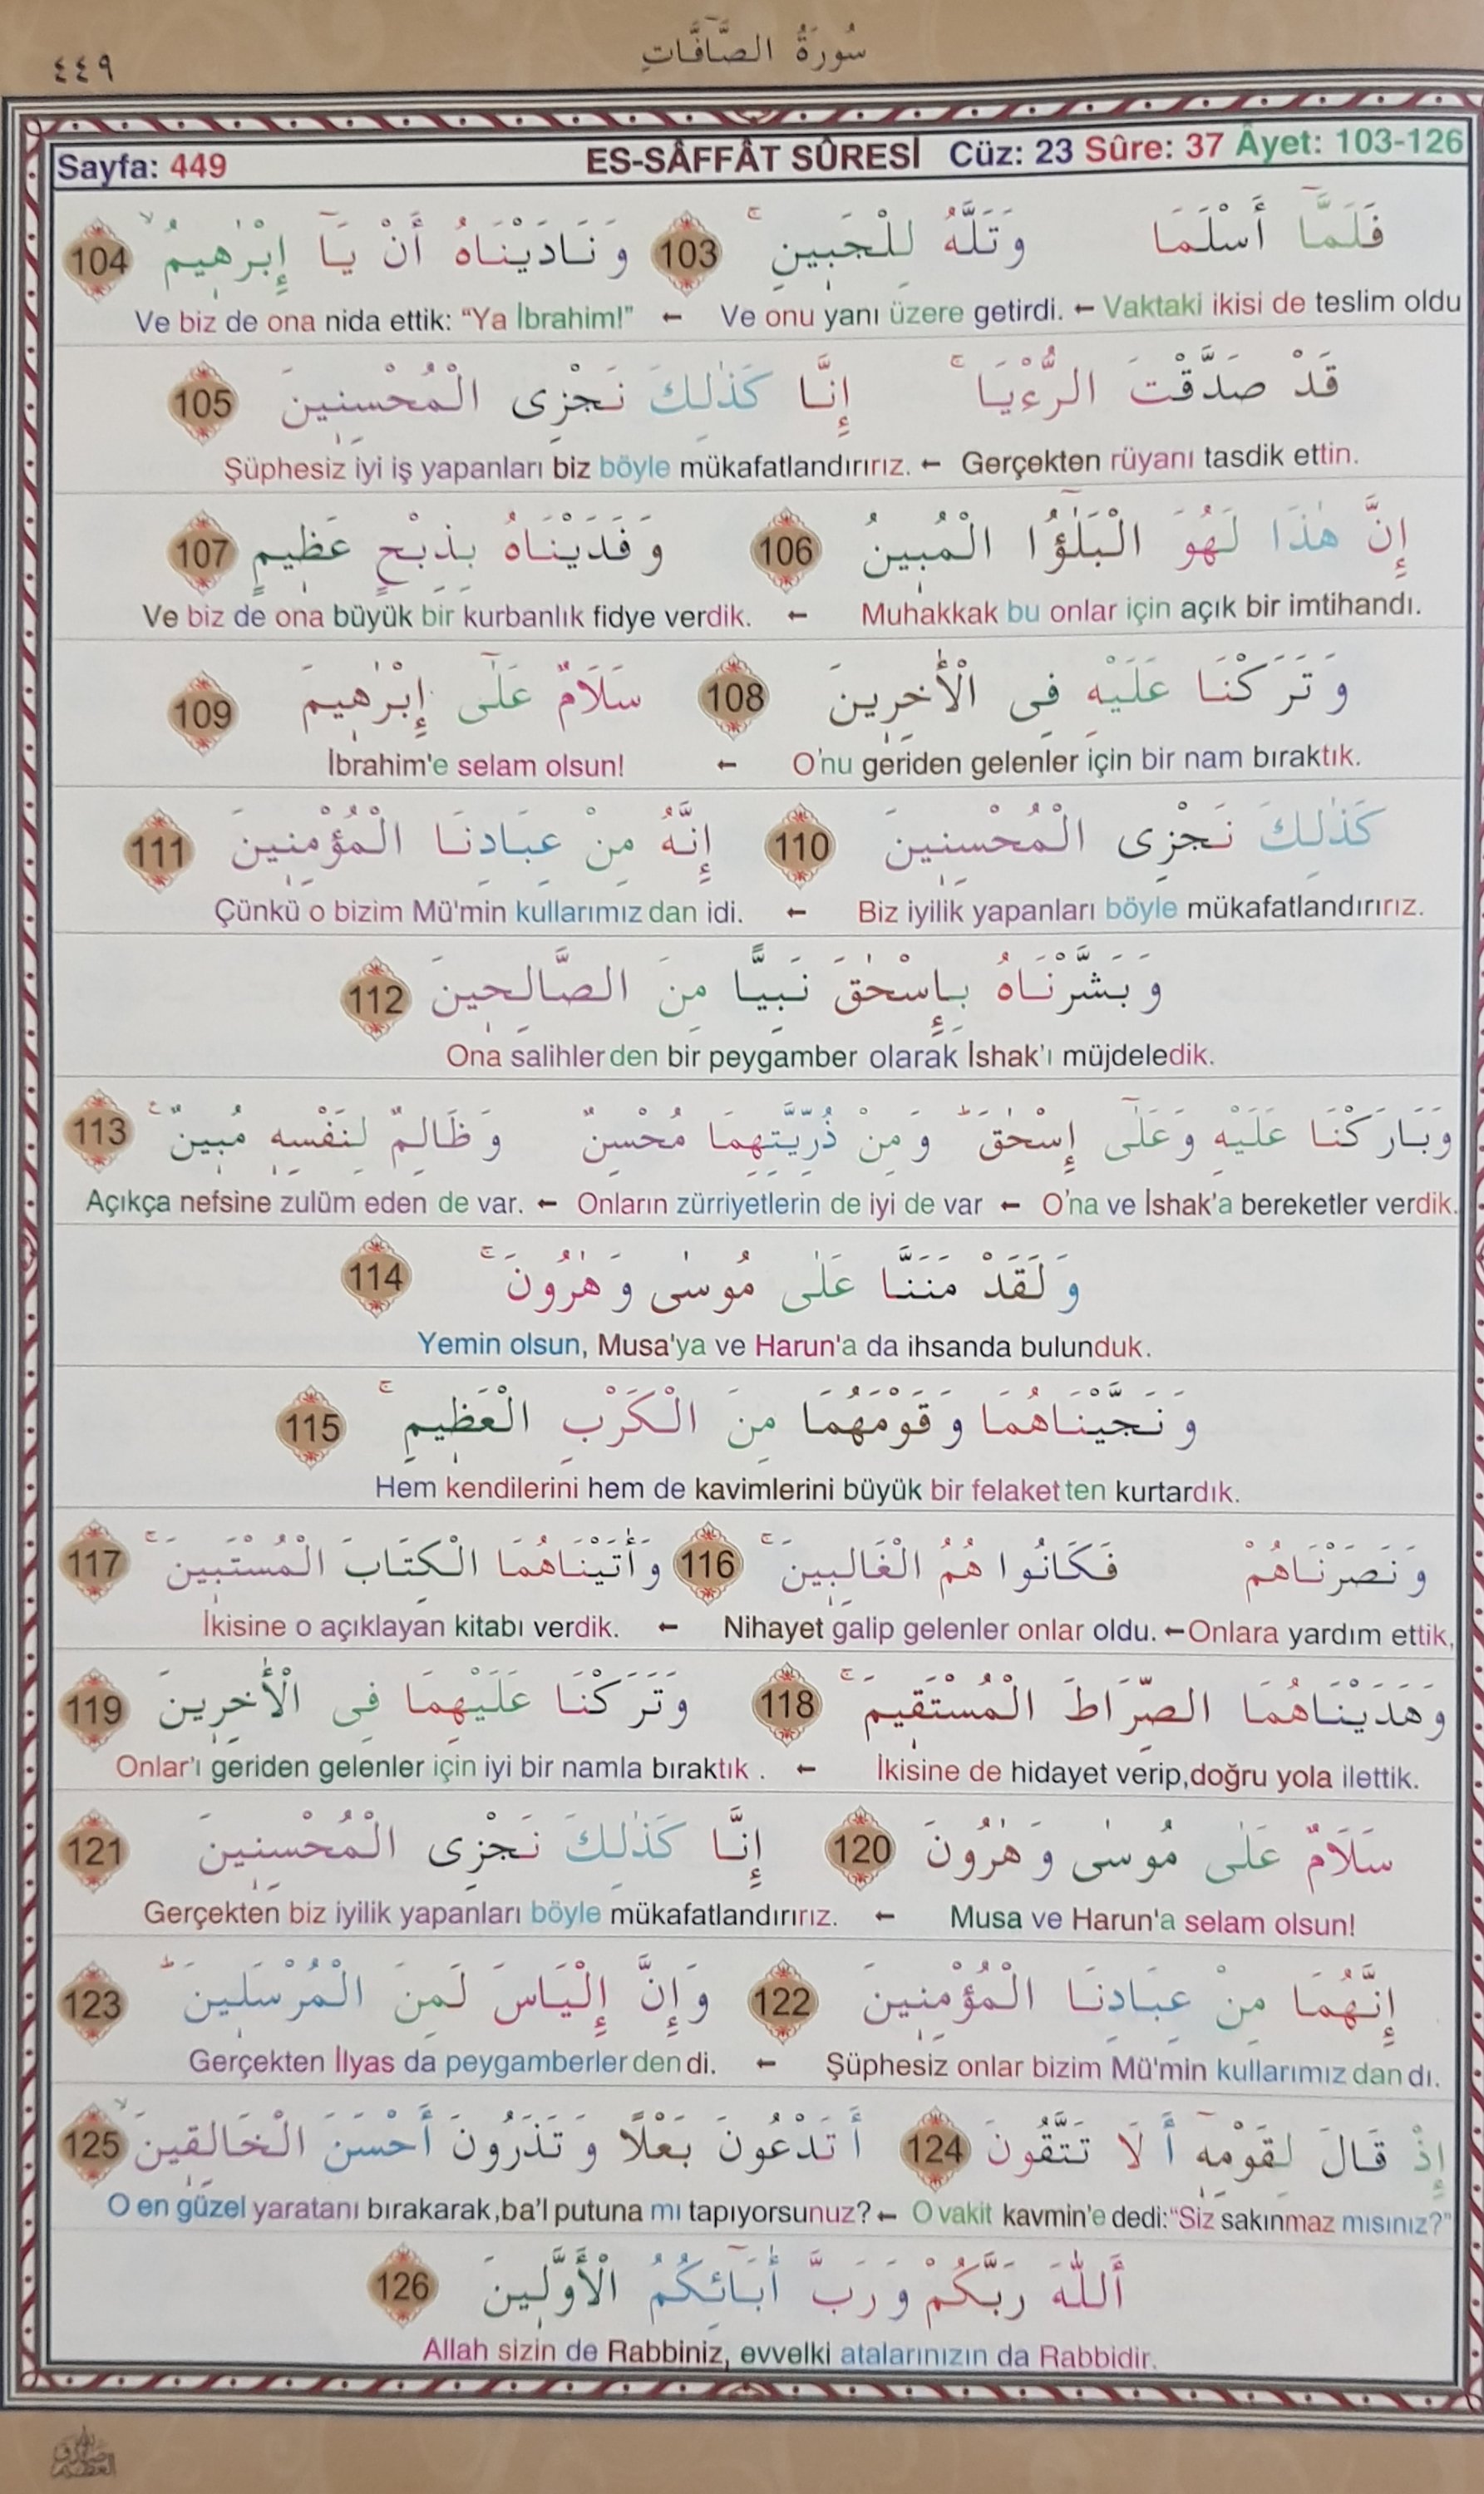 سُورَةُ الصَّٓافَّاتِ
٤٤٩
Sayfa: 449 ES-SÂFFÂT SÛRESİ Cüz: 23 Sûre: 37 Âyet: 103-126
فَلَمَّٓا أَسْلَمَا وَتَلَّهُ لِلْجَبٖينِ ۚ 103 وَنَادَيْنَاهُ أَنْ يَٓا إِبْرٰهٖيمُ ۙ 104
Vaktaki ikisi de teslim oldu ← Ve onu yanı üzere getirdi. ← Ve biz de ona nida ettik: “Ya İbrahim!”
قَدْ صَدَّقْتَ الرُّءْيَا ۚ إِنَّا كَذٰلِكَ نَجْزِى الْمُحْسِنٖينَ 105
Gerçekten rüyanı tasdik ettin. ← Şüphesiz iyi iş yapanları biz böyle mükafatlandırırız.
إِنَّ هٰذَا لَهُوَ الْبَلٰٓؤُا الْمُبٖينُ 106 وَفَدَيْنَاهُ بِذِبْحٍ عَظٖيمٍ 107
Muhakkak bu onlar için açık bir imtihandı. ← Ve biz de ona büyük bir kurbanlık fidye verdik.
وَتَرَكْنَا عَلَيْهِ فِى الْأٰخِرٖينَ 108 سَلَامٌ عَلٰٓى إِبْرٰهٖيمَ 109
O'nu geriden gelenler için bir nam bıraktık. ← İbrahim'e selam olsun!
كَذٰلِكَ نَجْزِى الْمُحْسِنٖينَ 110 إِنَّهُ مِنْ عِبَادِنَا الْمُؤْمِنٖينَ 111
Biz iyilik yapanları böyle mükafatlandırırız. ← Çünkü o bizim Mü'min kullarımız dan idi.
وَبَشَّرْنَاهُ بِإِسْحٰقَ نَبِيًّا مِنَ الصَّالِحٖينَ 112
Ona salihler den bir peygamber olarak İshak'ı müjdeledik.
وَبَارَكْنَا عَلَيْهِ وَعَلٰٓى إِسْحٰقَ ۜ وَمِنْ ذُرِّيَّتِهِمَا مُحْسِنٌ وَظَالِمٌ لِنَفْسِهٖ مُبٖينٌ ۚ 113
O'na ve İshak'a bereketler verdik. ← Onların zürriyetlerin de iyi de var ← Açıkça nefsine zulüm eden de var.
وَلَقَدْ مَنَنَّا عَلٰى مُوسٰى وَهٰرُونَ ۚ 114
Yemin olsun, Musa'ya ve Harun'a da ihsanda bulunduk.
وَنَجَّيْنَاهُمَا وَقَوْمَهُمَا مِنَ الْكَرْبِ الْعَظٖيمِ ۚ 115
Hem kendilerini hem de kavimlerini büyük bir felaket ten kurtardık.
وَنَصَرْنَاهُمْ فَكَانُوا هُمُ الْغَالِبٖينَ ۚ 116 وَأٰتَيْنَاهُمَا الْكِتَابَ الْمُسْتَبٖينَ ۚ 117
Onlara yardım ettik, ← Nihayet galip gelenler onlar oldu. ← İkisine o açıklayan kitabı verdik.
وَهَدَيْنَاهُمَا الصِّرَاطَ الْمُسْتَقٖيمَ ۚ 118 وَتَرَكْنَا عَلَيْهِمَا فِى الْأٰخِرٖينَ 119
İkisine de hidayet verip,doğru yola ilettik. ← Onlar'ı geriden gelenler için iyi bir namla bıraktık .
سَلَامٌ عَلٰى مُوسٰى وَهٰرُونَ 120 إِنَّا كَذٰلِكَ نَجْزِى الْمُحْسِنٖينَ 121
Musa ve Harun'a selam olsun! ← Gerçekten biz iyilik yapanları böyle mükafatlandırırız.
إِنَّهُمَا مِنْ عِبَادِنَا الْمُؤْمِنٖينَ 122 وَإِنَّ إِلْيَاسَ لَمِنَ الْمُرْسَلٖينَ ۜ 123
Şüphesiz onlar bizim Mü'min kullarımız dan dı. ← Gerçekten İlyas da peygamberler den di.
إِذْ قَالَ لِقَوْمِهٖٓ أَلَا تَتَّقُونَ 124 أَتَدْعُونَ بَعْلًا وَتَذَرُونَ أَحْسَنَ الْخَالِقٖينَ ۙ 125
O vakit kavmin'e dedi:“Siz sakınmaz mısınız?” ← O en güzel yaratanı bırakarak,ba'l putuna mı tapıyorsunuz?
أَللّٰهَ رَبَّكُمْ وَرَبَّ أٰبَٓائِكُمُ الْأَوَّلٖينَ 126
Allah sizin de Rabbiniz, evvelki atalarınızın da Rabbidir.